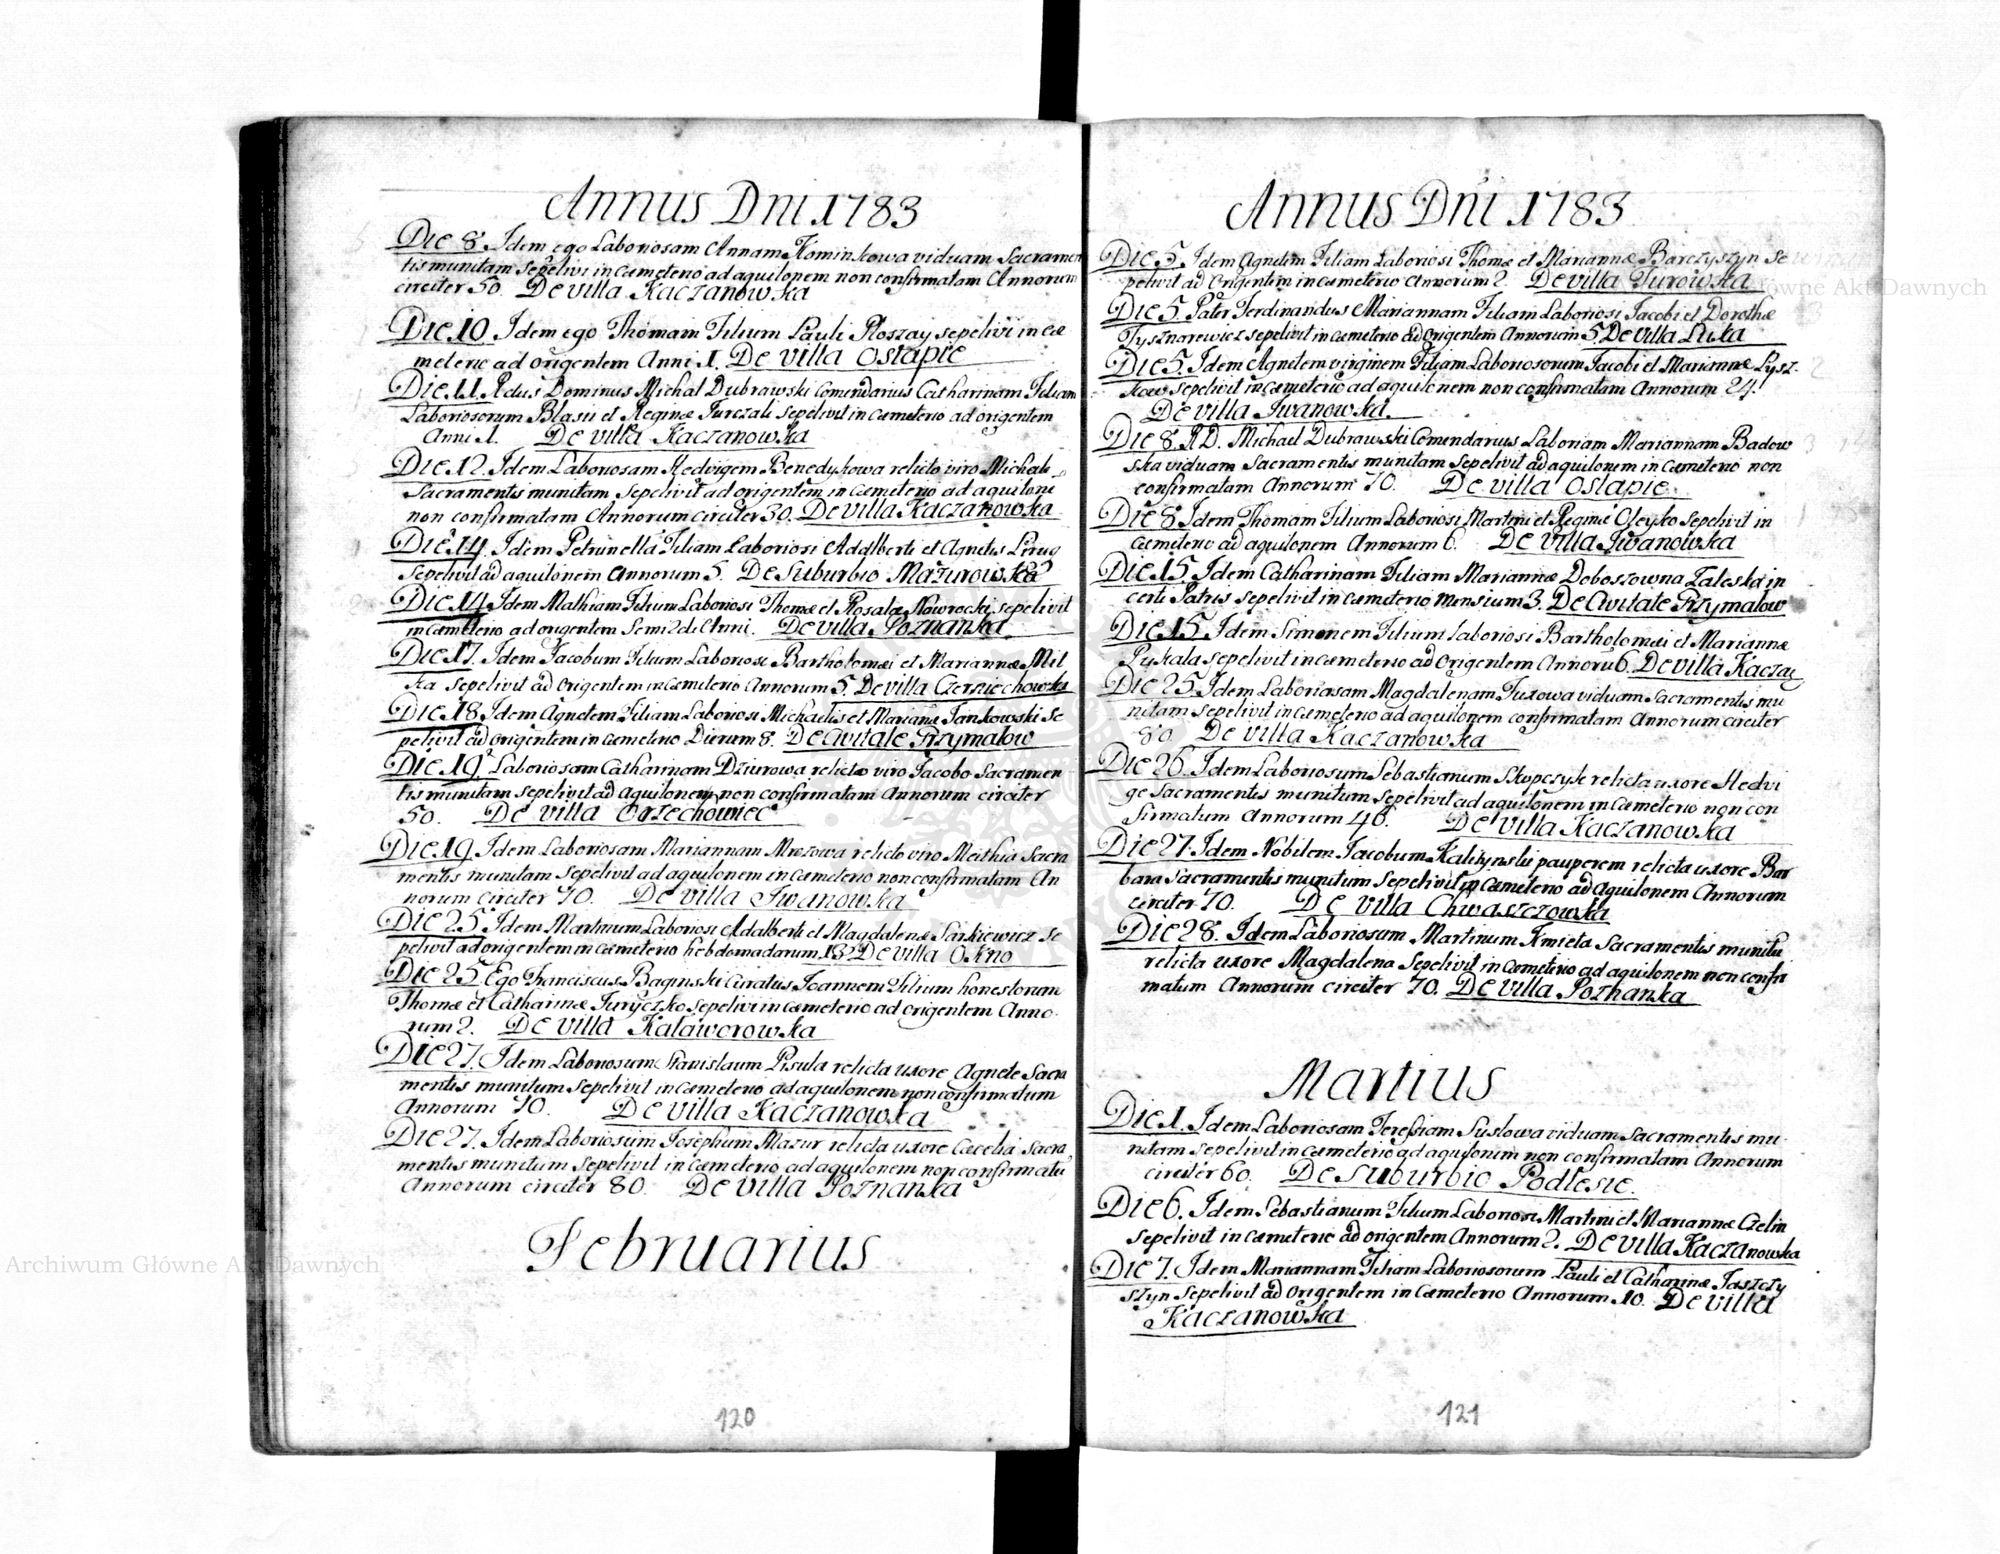 Annus Dni 1783
Die 8. Idem ego Laboriosam Annam Kominkowa viduam Sacramen
tis munitam sepelivi in cæmeterio ad aquilonem non confirmatam Annorum
circiter 50. De villa Kaczanowska
Die 10 Idem ego Thomam Filium Pauli Płoszay sepelivi in cæ
meterio ad origentem Anni 1. De villa Ostapie
Die 11. Rdus Dominus Michal Dubrawski Comendarius Catharinam Filiam
Laboriosorum Blasii et Reginæ Turczali sepelivit in cæmeterio ad origentem
Anni 1. De villa Kaczanowska
Die 12. Idem Laboriosam Hedvigem Benedykowa relicto viro Michale
Sacramentis munitam, sepelivit ad origentem in cæmeterio ad aquiloni
non confirmatam Annorum circiter 30. De villa Kaczanowska
Die 14. Idem Petrunella Filiam Laboriosi Adalberti et Agnetis
sepelivit ad aquilonem Annorum 5. De Suburbio Mazurowka
Die 14 Idem Mathiam Filium Laboriosi Thomæ et Rosaliæ Nawrocki sepelivit
in cæmeterio ad origentem Anni. De villa Poznanka
Die 17. Idem Jacobum Filium Laboriosi Bartholomæi et Mariannæ Mil
ka sepelivit ad origentem in cæmeterio Annorum 5. De villa Czerniechowka
Die 18 Idem Agnetem Filiam Laboriosi Michaelis et Mariannæ Jankowski se
pelivit ad origentem in cæmeterio Dierum 8. De Civitate Grzymalow
Die 19 Laboriosam Catharinam Dziurowa relicto viro Jacobo Sacramen
tis munitam sepelivit ad aquilonem non confirmatam Annorum circiter
50. De villa Orzechowiec
Die 19 Idem Laboriosam Mariannam Mrozowa relicto viro Mathia Sacra
mentis munitam sepelivit ad aquilonem in cæmeterio non confirmatam An
norum circiter 70. De villa Iwanowska
Die 25 Idem Martinum Laboriosi Adalberti et Magdalenæ Sarkiewicz se
pelivit ad origentem in cæmeterio hebdomadarum 13 De villa Okno
Die 25 Ego Franciscus Baginski Curatus Joannem Filium honestorum
Thomæ et Catharinæ Juryczko sepelivi in cæmeterio ad origentem Anno
rum 2. De villa Kaławorowka
Die 27. Idem Laboriosum Stanislaum Pisula relicta uxore Agnete Sacra
mentis munitum sepelivit in cæmeterio ad aquilonem non confirmatum
Annorum 70. De villa Kaczanowska
Die 27. Idem Laboriosum Josephum Mazur relicta uxore Cæcelia Sacra
mentis munitum sepelivit in cæmeterio ad aquilonem non confirmatu
Annorum circiter 80. De villa Poznanka
Februarius
120
Annus Dni 1783
Die 5. Idem Agnetem Filiam Laboriosi Thomæ et Mariannæ Barczyszyn Se
pelivit ad Origentem in cæmeterio Annorum 2. De villa Turowka
Die 5. Pater Ferdinandus Mariannam Filiam Laboriosi Jacobi et Dorothæ
Tysznarewicz sepelivit in cæmeterio ad origentem Annorum 5. De villa Luka
Die 5. Idem Agnetem virginem Filiam Laboriosorum Jacobi et Mariannæ Łysz
kow sepelivit in cæmeterio ad aquilonem non confirmatam Annorum 24.
De villa Iwanowka
Die 8. R.D. Michael Dubrawski Comendarius Laboriam Mariannam Badow
ska viduam Sacramentis munitam sepelivit ad aquilonem in cæmeterio non
confirmatam Annorum 70. De villa Ostapie
Die 8 Idem Thomam Filium Laboriosi Martini et Reginæ Oleyko sepelivit in
Cæmeterio ad aquilonem Annorum 6. De villa Iwanowska
Die 15 Idem Catharinam Filiam Mariannæ Doboszowna Zaleska in
certi Patris sepelivit in cæmeterio Mensium 3. De Civitate Grzymalow
Die 15 Idem Simonem Filium Laboriosi Bartholomæi et Mariannæ
Pykala sepelivit in cæmeterio ad origentem Annoru 6. De villa Kaczan
Die 25 Idem Laboriasam Magdalenam Tuzowa viduam Sacramentis mu
nitam sepelivit in cæmeterio ad aquilonem confirmatam Annorum circiter
80 De villa Kaczanowska
Die 26. Idem Laboriosum Sebastianum Skopczyk relicta uxore Hedvi
ge Sacramentis munitum sepelivit ad aquilonem in cæmeterio non con
firmatum Annorum 46. De villa Kaczanowska
Die 27. Idem Nobilem Jacobum Kalizynski pauperem relicta uxore Bar
bara Sacramentis munitum sepelivit in cæmeterio ad aquilonem Annorum
circiter 70. De villa Chwaszczowska
Die 28. Idem Laboriosum Martinum Kmieta Sacramentis munitu
relicta uxore Magdalena sepelivit in cæmeterio ad aquilonem non confir
matum Annorum circiter 70. De villa Poznanka
Martius
Die 1. Idem Laboriosam Teressiam Suslowa viduam Sacramentis mu
nitam sepelivit in cæmeterio ad aquilonim non confirmatam Annorum
circiter 60. De Suburbio Podlesie.
Die 6. Idem Sebastianum Filium Laboriosi Martini et Mariannæ Czelin
sepelivit in cæmeterio ad origentem Annorum 2. De villa Kaczanowska
Die 7. Idem Mariannam Filiam Laboriosorum Pauli et Catharinæ Jaszczy
szyn sepelivit ad origentem in cæmeterio Annorum 10. De villa
Kaczanowska
121
Archiwum Główne Akt Dawnych
Główne Akt Dawnych